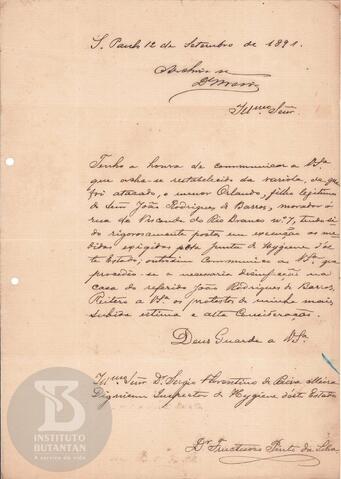 S. Paulo 12 de Setembro de 1891.
Archive-se
Illmo Senr.
Tenho a honra de communicar a V.Sa
que acha-se restabelecido da variola, de que
foi atacado, o menor Orlando, filho legitimo
do Senr João Rodrigues de Barros, morador á
rua do Visconde do Rio Branco nº 7, tendo si
do rigorosamente posta em execução as me
didas exigidas pela junta de Hygiene d'es
te Estado, outrosim communico a V.Sa que
procedeo-se a necessaria desinfecção na
casa do referido João Rodrigues de Barros.
Reitero a V.Sa os protestos de minha mais
subida estima e alta consideração.
Deus Guarde a V.Sa
Illmo Senr Dr. Sergio Florentino de Paiva Meira
Dignissimo Inspector de Hygiene d'este Estado
Dr. Fructuoso Pinto da Silva
INSTITUTO
BUTANTAN
A serviço da vida